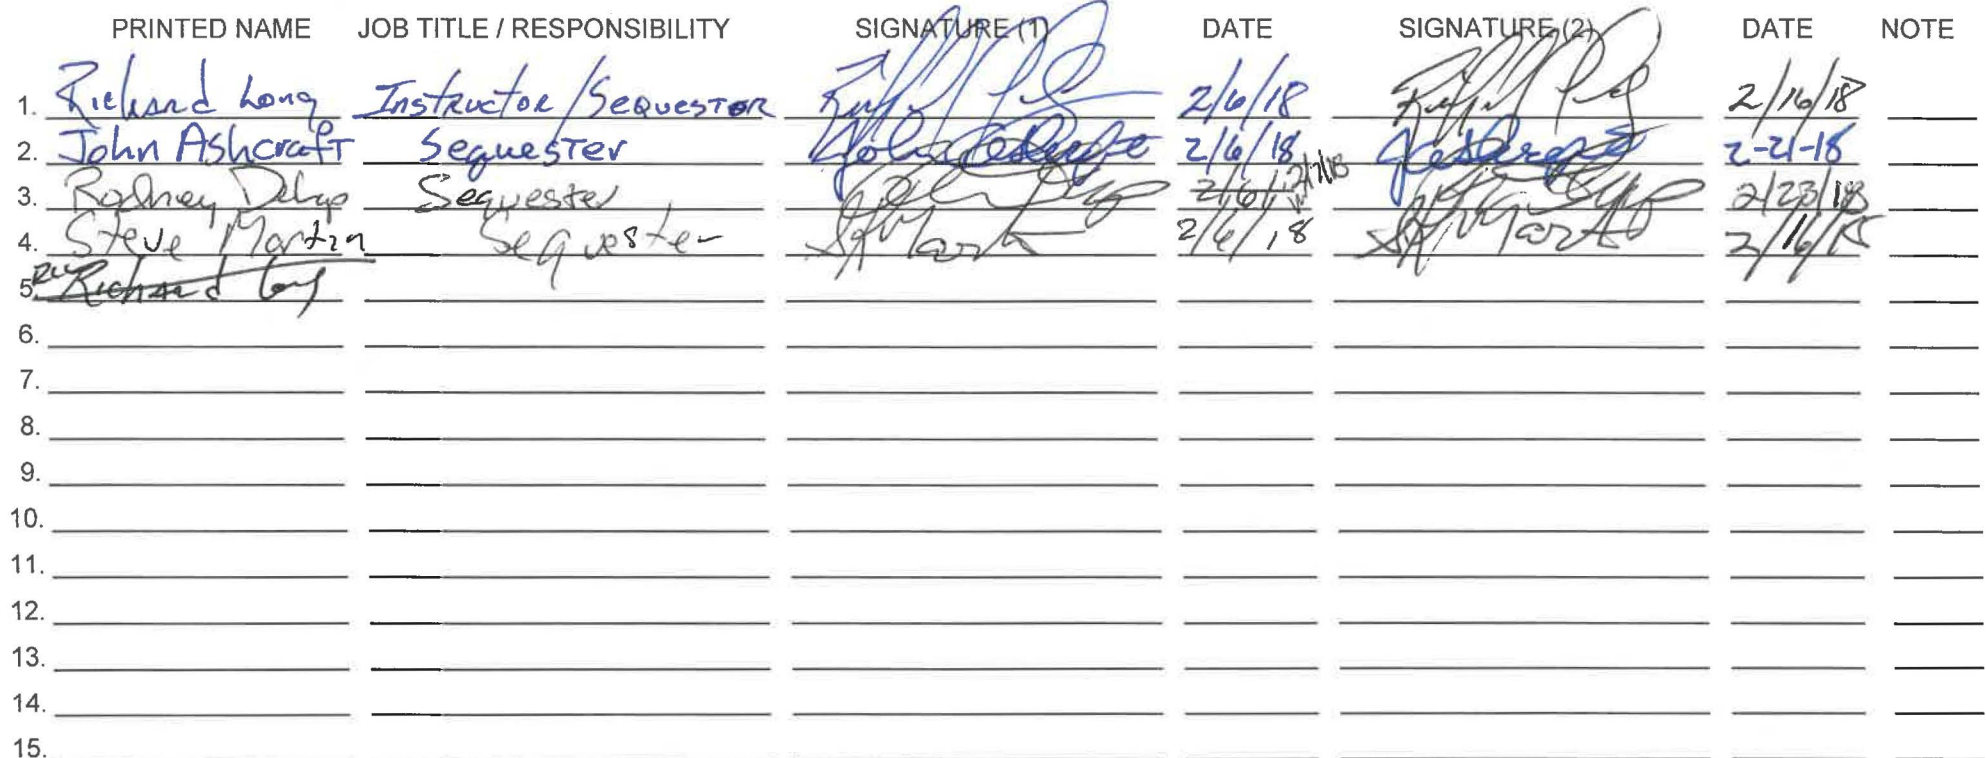 PRINTED NAME JOB TITLE / RESPONSIBILITY SIGNATURE (1) DATE SIGNATURE (2) DATE NOTE
1. Richard Long Instructor/Sequestor 2/6/18 2/16/18
2. John Ashcraft Sequester John 2/6/18 2-21-18
3. Rodney Sequester 2/6/ 2/23/18
4. Steve Martin Sequester 2/6/18 2/16/18
5. Richard Long
6.
7.
8.
9.
10.
11.
12.
13.
14.
15.